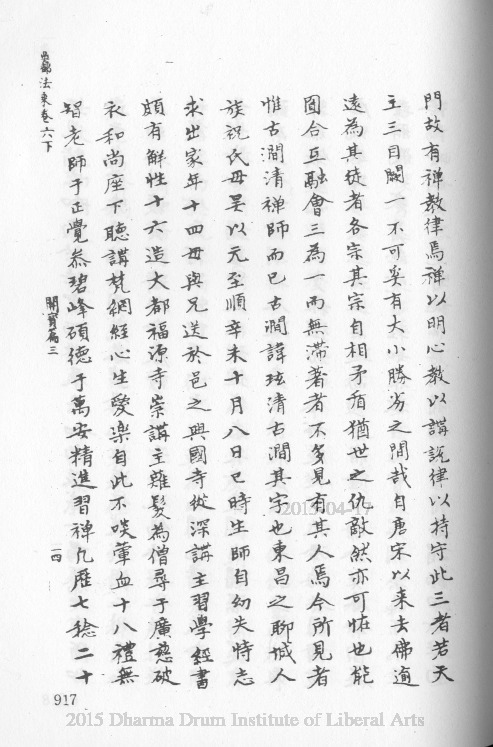 門故有禪教律焉禪以明心教以講說律以持守此三者若天
主三目闕一不可奚有大小勝劣之間哉自唐宋以来去佛逾
遠為其徒者各宗其宗自相矛盾猶世之仇敵然亦可怪也能
圓合互融會三為一而無滯著者不多見有其人焉今所見者
惟古澗清禪師而已古澗諱玹清古澗其字也東昌之聊城人
族祝氏母吴以元至順辛未十月八日巳時生師自幼失恃志
求出家年十四母與兄送於邑之興國寺從深講主習學經書
頗有解性十六造大都福源寺崇講主薙髮為僧尋于廣慈破
衣和尚座下聽講梵網經心生愛樂自此不啖葷血十八禮無
智老師于正覺叅碧峰碩德于萬安精進習禪凡歷七稔二十
法東卷六下
開寳篇三
一四
917
2015-04-17
2015 Dharma Drum Institute of Liberal Arts